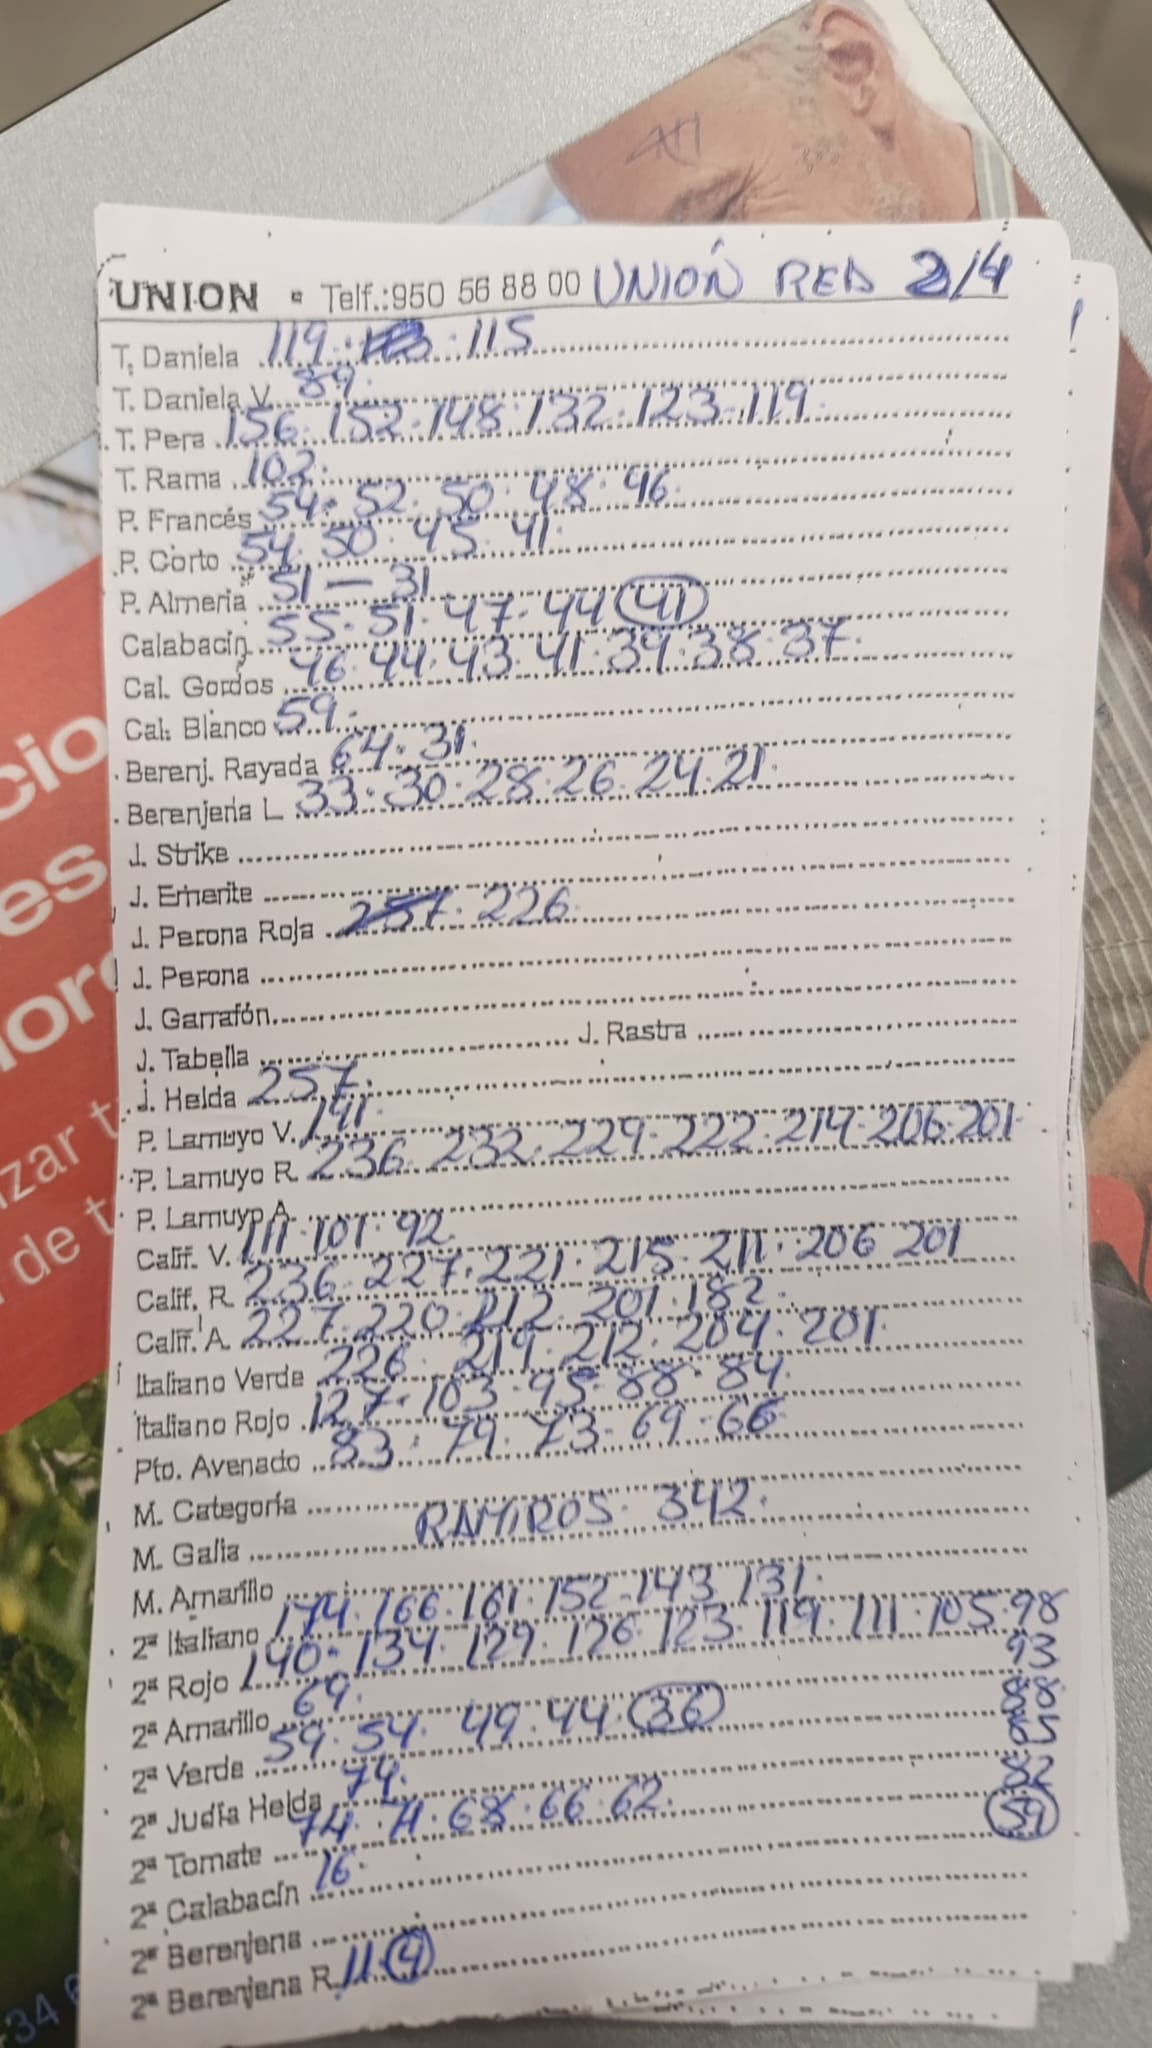 UNION • Telf.:950 56 88 00 UNIÓN RED 2/4
T. Daniela 119. 115
T. Daniela V. 89.
T. Pera 156. 152. 148. 132. 123. 119.
T. Rama 102.
P. Francés 54. 52. 50. 48. 46.
P. Corto 54. 50. 45. 41.
P. Almería 51 — 31
Calabacín 55. 51. 47. 44 (41)
Cal. Gordos 46. 44. 43. 41. 39. 38. 37.
Cal. Blanco 59.
Berenj. Rayada 64. 31.
Berenjena L 33. 30. 28. 26. 24. 21.
J. Strike
J. Emerite
J. Perona Roja 257. 226.
J. Perona
J. Garrafón
J. Tabella J. Rastra
J. Helda 257.
P. Lamuyo V. 141.
P. Lamuyo R. 236. 232. 229. 222. 214. 206. 201.
P. Lamuyo A.
Calif. V. 111. 101. 92.
Calif. R. 236. 227. 221. 215. 211. 206 201
Calif. A. 227. 220. 212. 201. 182.
Italiano Verde 226. 219. 212. 204. 201.
Italiano Rojo 127. 103. 95. 88. 84.
Pto. Avenado 83. 79. 73. 69. 66
M. Categoría
M. Galia RAMIROS. 342.
M. Amarillo
2ª Italiano 174. 166. 161. 152. 143. 131.
2ª Rojo 140. 134. 129. 126. 123. 119. 111. 105. 98
93
2ª Amarillo 69.
88.
2ª Verde 59. 54. 49. 44. (36)
85
2ª Judía Helda 74.
82
2ª Tomate 74. 71. 68. 66. 62.
(59)
2ª Calabacín 16.
2ª Berenjena
2ª Berenjena R. 11. (4)
cio
es
zar t
de t